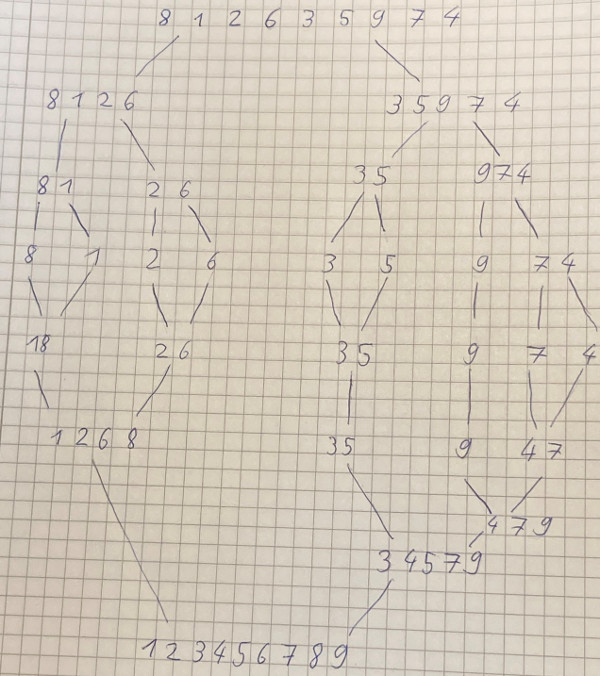 8 1 2 6 3 5 9 7 4
8 1 2 6 3 5 9 7 4
8 1 2 6 3 5 9 7 4
8 1 2 6 3 5 9 7 4
18 2 6 3 5 9 7 4
1 2 6 8 3 5 9 4 7
4 7 9
3 4 5 7 9
1 2 3 4 5 6 7 8 9